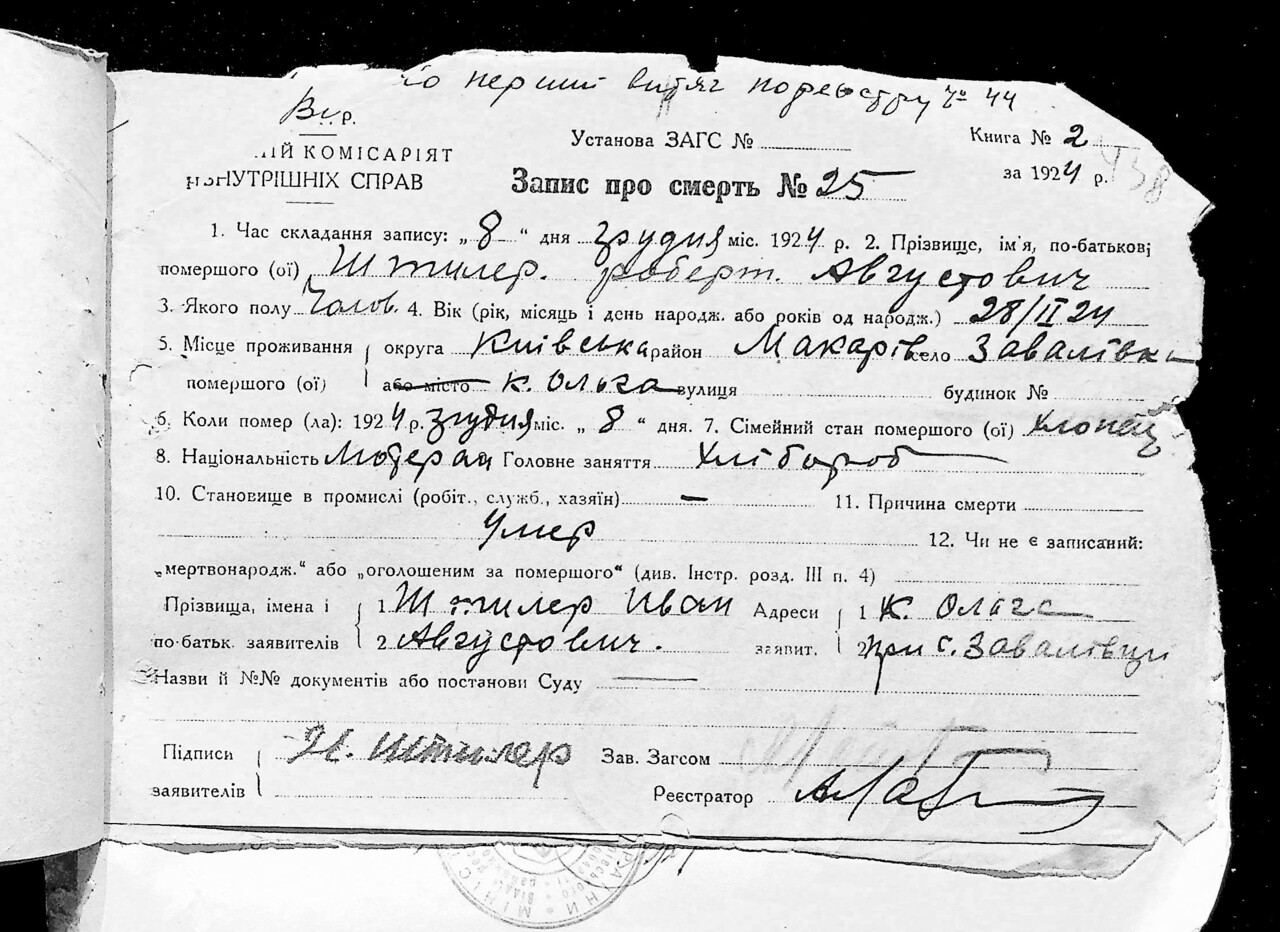 перший витяг по реєстру № 44
Вир.
Установа ЗАГС №
Книга № 2
КОМІСАРІЯТ
за 1924 р.
ВНУТРІШНІХ СПРАВ
Запис про смерть № 25
1. Час складання запису: „ 8 “ дня грудня міс. 1924 р. 2. Прізвище, ім'я, по-батькові
помершого (ої) Штилер. роберт. Августович
3. Якого полу Чолов. 4. Вік (рік, місяць і день народж. або років од народж.) 28/II 24
5. Місце проживання округа Київська район Макарів село Завалівка
помершого (ої) або місто к. Ольга вулиця будинок №
6. Коли помер (ла): 1924 р. грудня міс. „ 8 “ дня. 7. Сімейний стан помершого (ої) хлопец
8. Національність Лютеран Головне заняття Хлібороб
10. Становище в промислі (робіт., служб., хазяїн) — 11. Причина смерти
Умер 12. Чи не є записаний:
„мертвонародж.“ або „оголошеним за помершого“ (див. Інстр. розд. III п. 4)
Прізвища, імена і 1. Штилер Иван Адреси 1. К. Ольга
по-батьк. заявителів 2. Августович. заявит. 2. при с. Завалівци
Назви й №№ документів або постанови Суду —
Підписи И. Штилер Зав. Загсом
заявителів Реєстратор